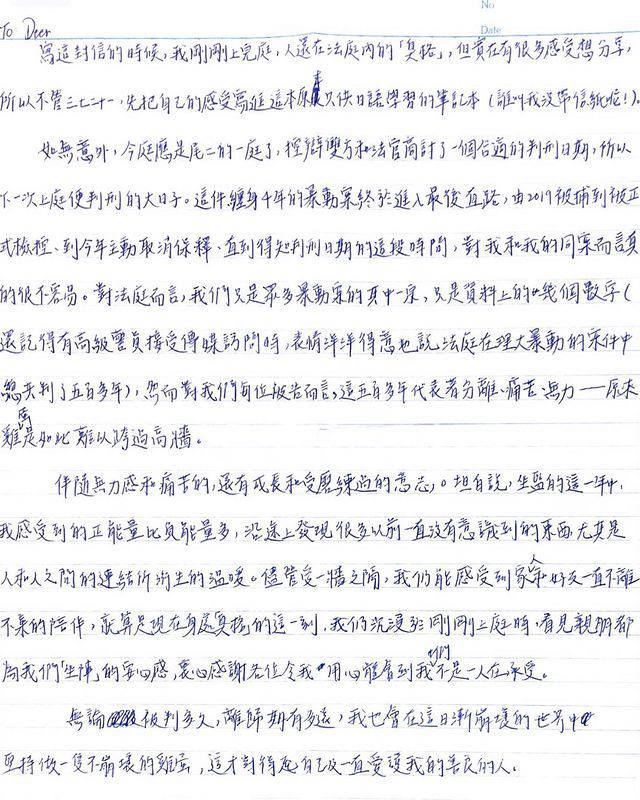 No
Date
To Deer
寫這封信的時候，我剛剛上完庭，人還在法庭內的「臭格」，但實在有很多感受想分享，
所以不管三七二十一，先把自己的感受寫進這本原本只供日語學習的筆記本（誰叫我沒帶信紙呢！）。
如無意外，今庭應是尾二的一庭了，控辯雙方和法官商討了一個合適的判刑日期，所以
下一次上庭便判刑的大日子。這件纏身4年的暴動案終於進入最後直路，由2019被捕到被正
式檢控、到今年主動取消保釋、直到得知判刑日期的這段時間，對我和我的同案而言真
的很不容易。對法庭而言，我們只是眾多暴動案的其中一宗，只是資料上的幾個數字（
還記得有高級警員接受傳媒訪問時，表情洋洋得意地說法庭在理大暴動的案件中
總共判了五百多年），然而對我們每位被告而言，這五百多年代表著分離、痛苦、無力——原來
雞蛋是如此難以跨過高牆。
伴隨無力感和痛苦的，還有成長和受磨練過的意志。坦白說，坐監的這一年，
我感受到的正能量比負能量多，沿途上發現很多以前一直沒有意識到的東西，尤其是
人和人之間的連結所衍生的溫暖。儘管受一牆之隔，我們能感受到家人和好友一直不離
不棄的陪伴，就算是現在身處臭格的這一刻，我仍沉浸於剛剛上庭時，看見親朋都
為我們「坐陣」的安心感，衷心感謝各位令我用心體會到我們不是一人在承受。
無論被判多久，離歸期有多遠，我也會在這日漸崩壞的世界中
堅持做一隻不崩壞的雞蛋，這才對得起自己及一直愛護我的善良的人。